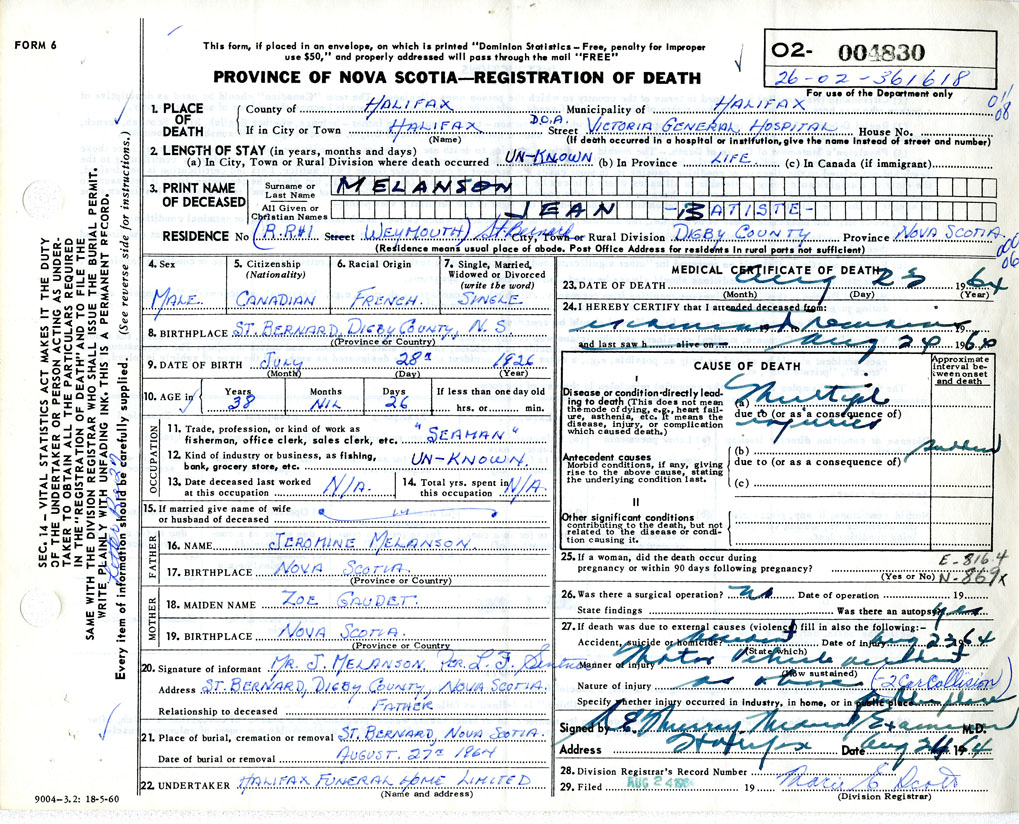 FORM 6
This form, if placed in an envelope, on which is printed "Dominion Statistics—Free, penalty for improper
use $50," and properly addressed will pass through the mail "FREE"
PROVINCE OF NOVA SCOTIA—REGISTRATION OF DEATH
02- 004830
26-02-361618
For use of the Department only
SEC. 14 — VITAL STATISTICS ACT MAKES IT THE DUTY
OF THE UNDERTAKER OR PERSON ACTING AS UNDER-
TAKER TO OBTAIN ALL THE PARTICULARS REQUIRED
IN THE "REGISTRATION OF DEATH" AND TO FILE THE
SAME WITH THE DIVISION REGISTRAR WHO SHALL ISSUE THE BURIAL PERMIT.
WRITE PLAINLY WITH UNFADING INK. THIS IS A PERMANENT RECORD.
Every item of information should be carefully supplied. (See reverse side for instructions.)
1. PLACE OF DEATH
County of HALIFAX Municipality of HALIFAX
If in City or Town HALIFAX D.O.A. Street VICTORIA GENERAL HOSPITAL House No.
(Name) (If death occurred in a hospital or institution, give the name instead of street and number)
2. LENGTH OF STAY (in years, months and days)
(a) In City, Town or Rural Division where death occurred UN-KNOWN (b) In Province LIFE (c) In Canada (if immigrant)
3. PRINT NAME OF DECEASED
Surname or Last Name MELANSON
All Given or Christian Names JEAN -BATISTE-
RESIDENCE No (R.R#1 Street WEYMOUTH) St Bernard City, Town or Rural Division DIGBY COUNTY Province NOVA SCOTIA
(Residence means usual place of abode. Post Office Address for residents in rural parts not sufficient)
4. Sex MALE
5. Citizenship (Nationality) CANADIAN
6. Racial Origin FRENCH.
7. Single, Married, Widowed or Divorced (write the word) SINGLE
8. BIRTHPLACE ST. BERNARD, DIGBY COUNTY, N.S.
(Province or Country)
9. DATE OF BIRTH JULY 28th 1926
(Month) (Day) (Year)
10. AGE in Years 38 Months NIL Days 26 If less than one day old hrs. or min.
OCCUPATION
11. Trade, profession, or kind of work as
fisherman, office clerk, sales clerk, etc. "SEAMAN"
12. Kind of industry or business, as fishing,
bank, grocery store, etc. UN-KNOWN.
13. Date deceased last worked at this occupation N/A.
14. Total yrs. spent in this occupation N/A.
15. If married give name of wife
or husband of deceased
FATHER
16. NAME JEROMINE MELANSON
17. BIRTHPLACE NOVA SCOTIA.
(Province or Country)
MOTHER
18. MAIDEN NAME ZOE GAUDET.
19. BIRTHPLACE NOVA SCOTIA.
(Province or Country)
20. Signature of informant MR. J. MELANSON, Per. L. F.
Address ST. BERNARD, DIGBY COUNTY, NOVA SCOTIA.
Relationship to deceased FATHER
21. Place of burial, cremation or removal ST. BERNARD, NOVA SCOTIA.
Date of burial or removal AUGUST. 27th 1964
22. UNDERTAKER HALIFAX FUNERAL HOME LIMITED
(Name and address)
9004—3.2: 18-5-60
MEDICAL CERTIFICATE OF DEATH
23. DATE OF DEATH Aug 23 1964
(Month) (Day) (Year)
24. I HEREBY CERTIFY that I attended deceased from:
examined remains 19
and last saw h alive on Aug 24 1964
CAUSE OF DEATH
Approximate interval between onset and death
I
Disease or condition directly leading to death (This does not mean the mode of dying, e.g., heart failure, asthenia, etc. It means the disease, injury, or complication which caused death.)
(a) Multiple
due to (or as a consequence of)
injuries
Antecedent causes
Morbid conditions, if any, giving rise to the above cause, stating the underlying condition last.
(b) sudden
due to (or as a consequence of)
(c)
II
Other significant conditions
contributing to the death, but not related to the disease or condition causing it.
25. If a woman, did the death occur during
pregnancy or within 90 days following pregnancy?
(Yes or No)
E-816.4
N-869x
26. Was there a surgical operation? no Date of operation 19
State findings Was there an autopsy? yes
27. If death was due to external causes (violence) fill in also the following:—
Accident, suicide or homicide? accident Date of injury Aug 23 1964
(State which)
Manner of injury Motor Vehicle accident
(How sustained)
Nature of injury as above (-2 Car Collision)
Specify whether injury occurred in industry, in home, or in public place public place
Signed by Murray Medical Examiner M.D.
Address Halifax Date Aug 24 1964
28. Division Registrar's Record Number
29. Filed AUG 24 1964 19 Marie E Scott
(Division Registrar)